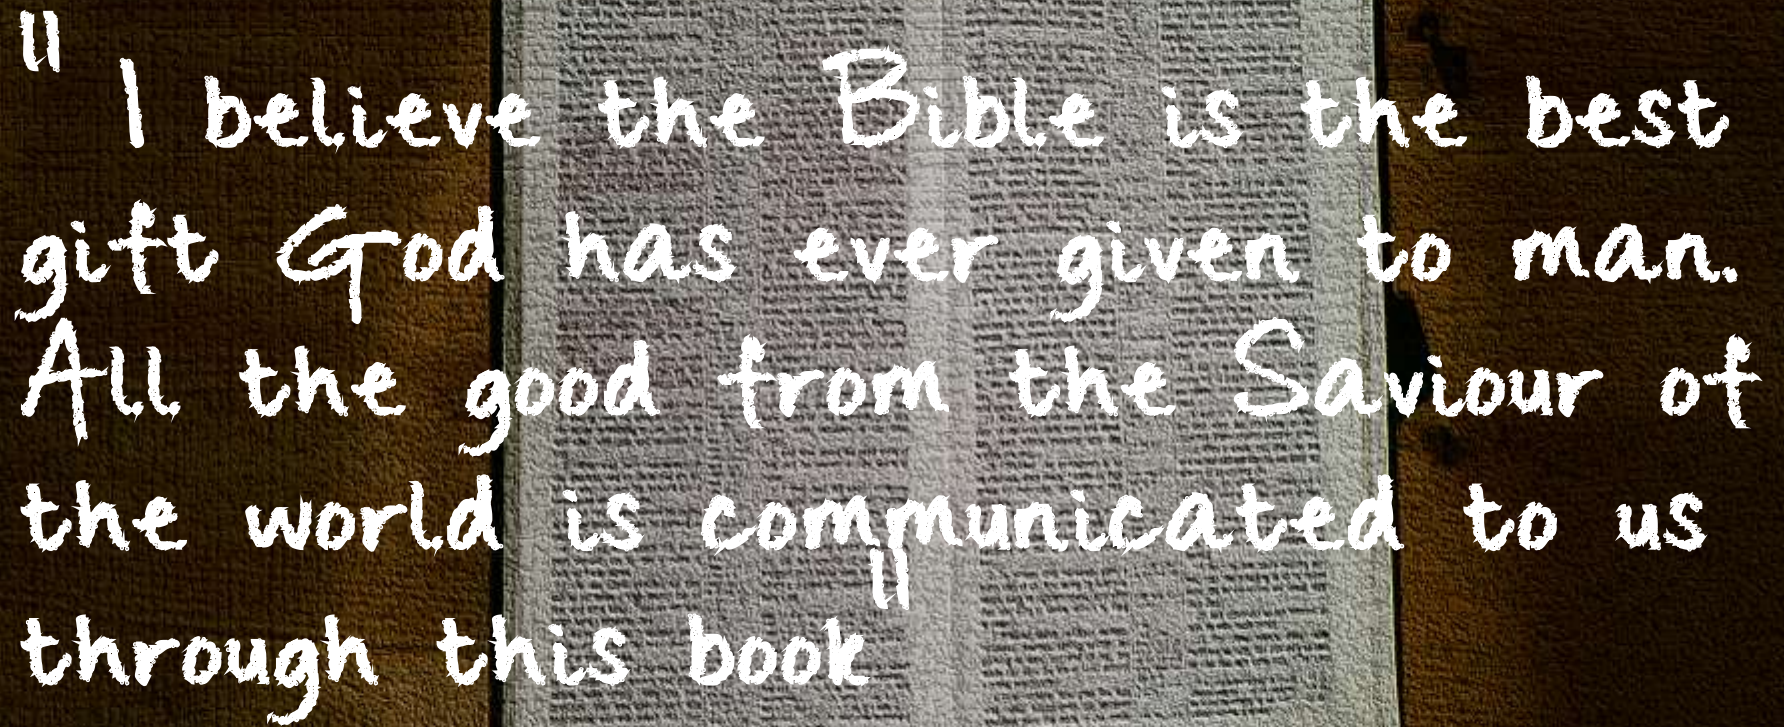 " I believe the Bible is the best
gift God has ever given to man.
All the good from the Saviour of
the world is communicated to us
through this book"